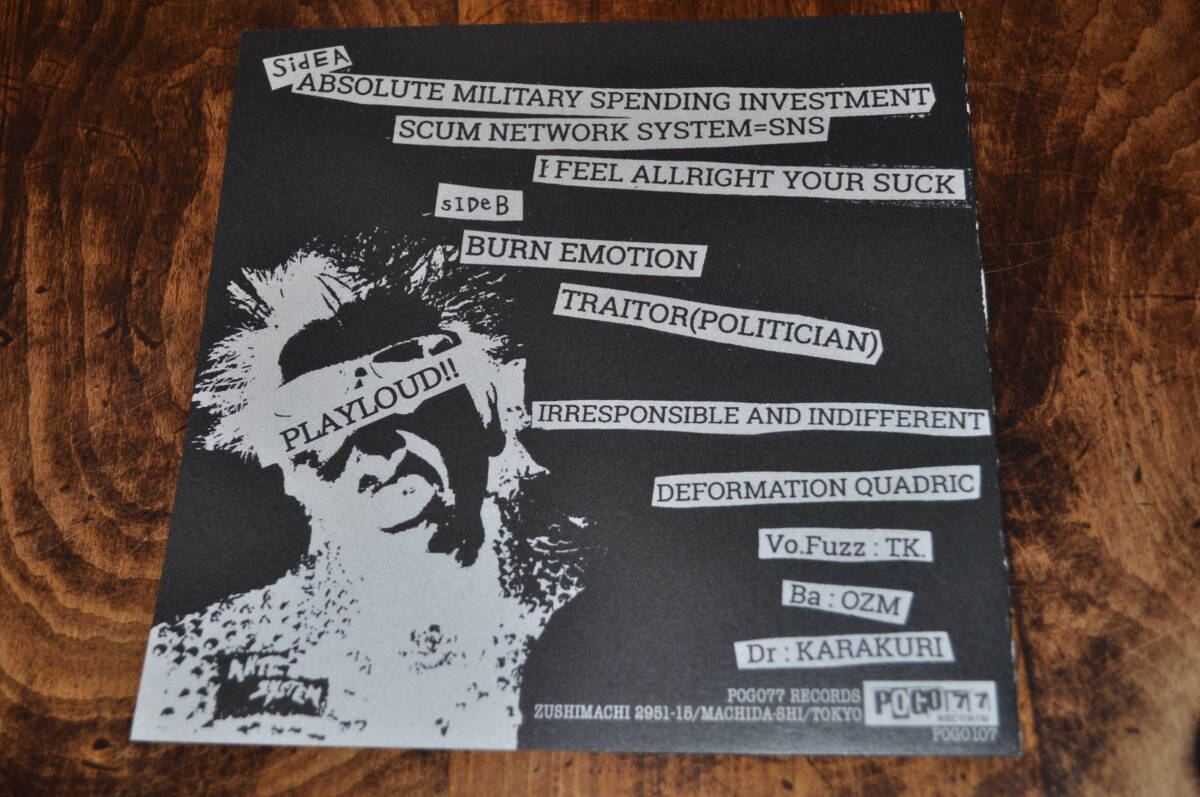 SidEA
ABSOLUTE MILITARY SPENDING INVESTMENT
SCUM NETWORK SYSTEM=SNS
I FEEL ALLRIGHT YOUR SUCK
sIDeB
BURN EMOTION
TRAITOR(POLITICIAN)
PLAYLOUD!!
IRRESPONSIBLE AND INDIFFERENT
DEFORMATION QUADRIC
Vo.Fuzz : TK.
Ba : OZM
Dr : KARAKURI
ANTI SYSTEM
POGO77 RECORDS
ZUSHIMACHI 2951-15/MACHIDA-SHI/TOKYO
POGO77
RECORDS
POGO107